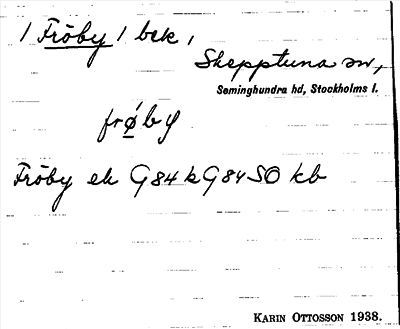 / Fröby / bek,
Skepptuna sn,
Seminghundra hd, Stockholms l.
frǿby
Fröby ek G84k G84SO kb
KARIN OTTOSSON 1938.